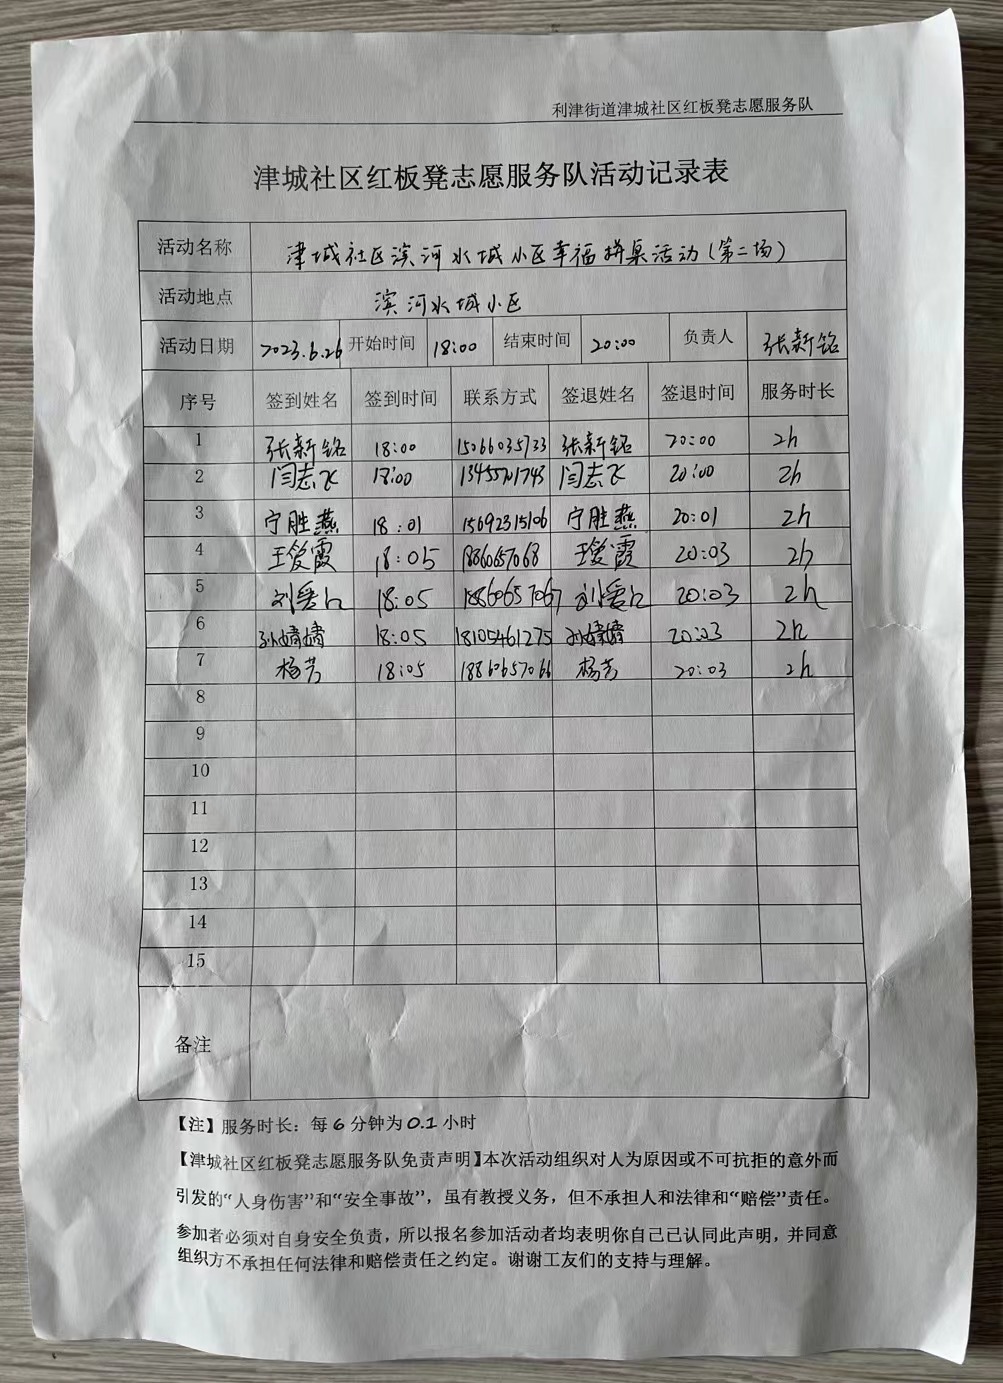 利津街道津城社区红板凳志愿服务队
津城社区红板凳志愿服务队活动记录表
活动名称 津城社区滨河水城小区幸福拼桌活动(第二场)
活动地点 滨河水城小区
活动日期 2023.6.26 开始时间 18:00 结束时间 20:00 负责人 张新铭
序号 签到姓名 签到时间 联系方式 签退姓名 签退时间 服务时长
1 张新铭 18:00 15066035733 张新铭 20:00 2h
2 闫志飞 18:00 闫志飞 20:00 2h
3 宁胜燕 18:01 15692315106 宁胜燕 20:01 2h
4 18:05 20:03 2h
5 18:05 18860657067 20:03 2h
6 孙婧婧 18:05 18105461275 孙婧婧 20:03 2h
7 杨芳 18:05 18860657066 杨芳 20:03 2h
8
9
10
11
12
13
14
15
备注
【注】服务时长：每6分钟为0.1小时
【津城社区红板凳志愿服务队免责声明】本次活动组织对人为原因或不可抗拒的意外而
引发的“人身伤害”和“安全事故”，虽有教授义务，但不承担人和法律和“赔偿”责任。
参加者必须对自身安全负责，所以报名参加活动者均表明你自己已认同此声明，并同意
组织方不承担任何法律和赔偿责任之约定。谢谢工友们的支持与理解。